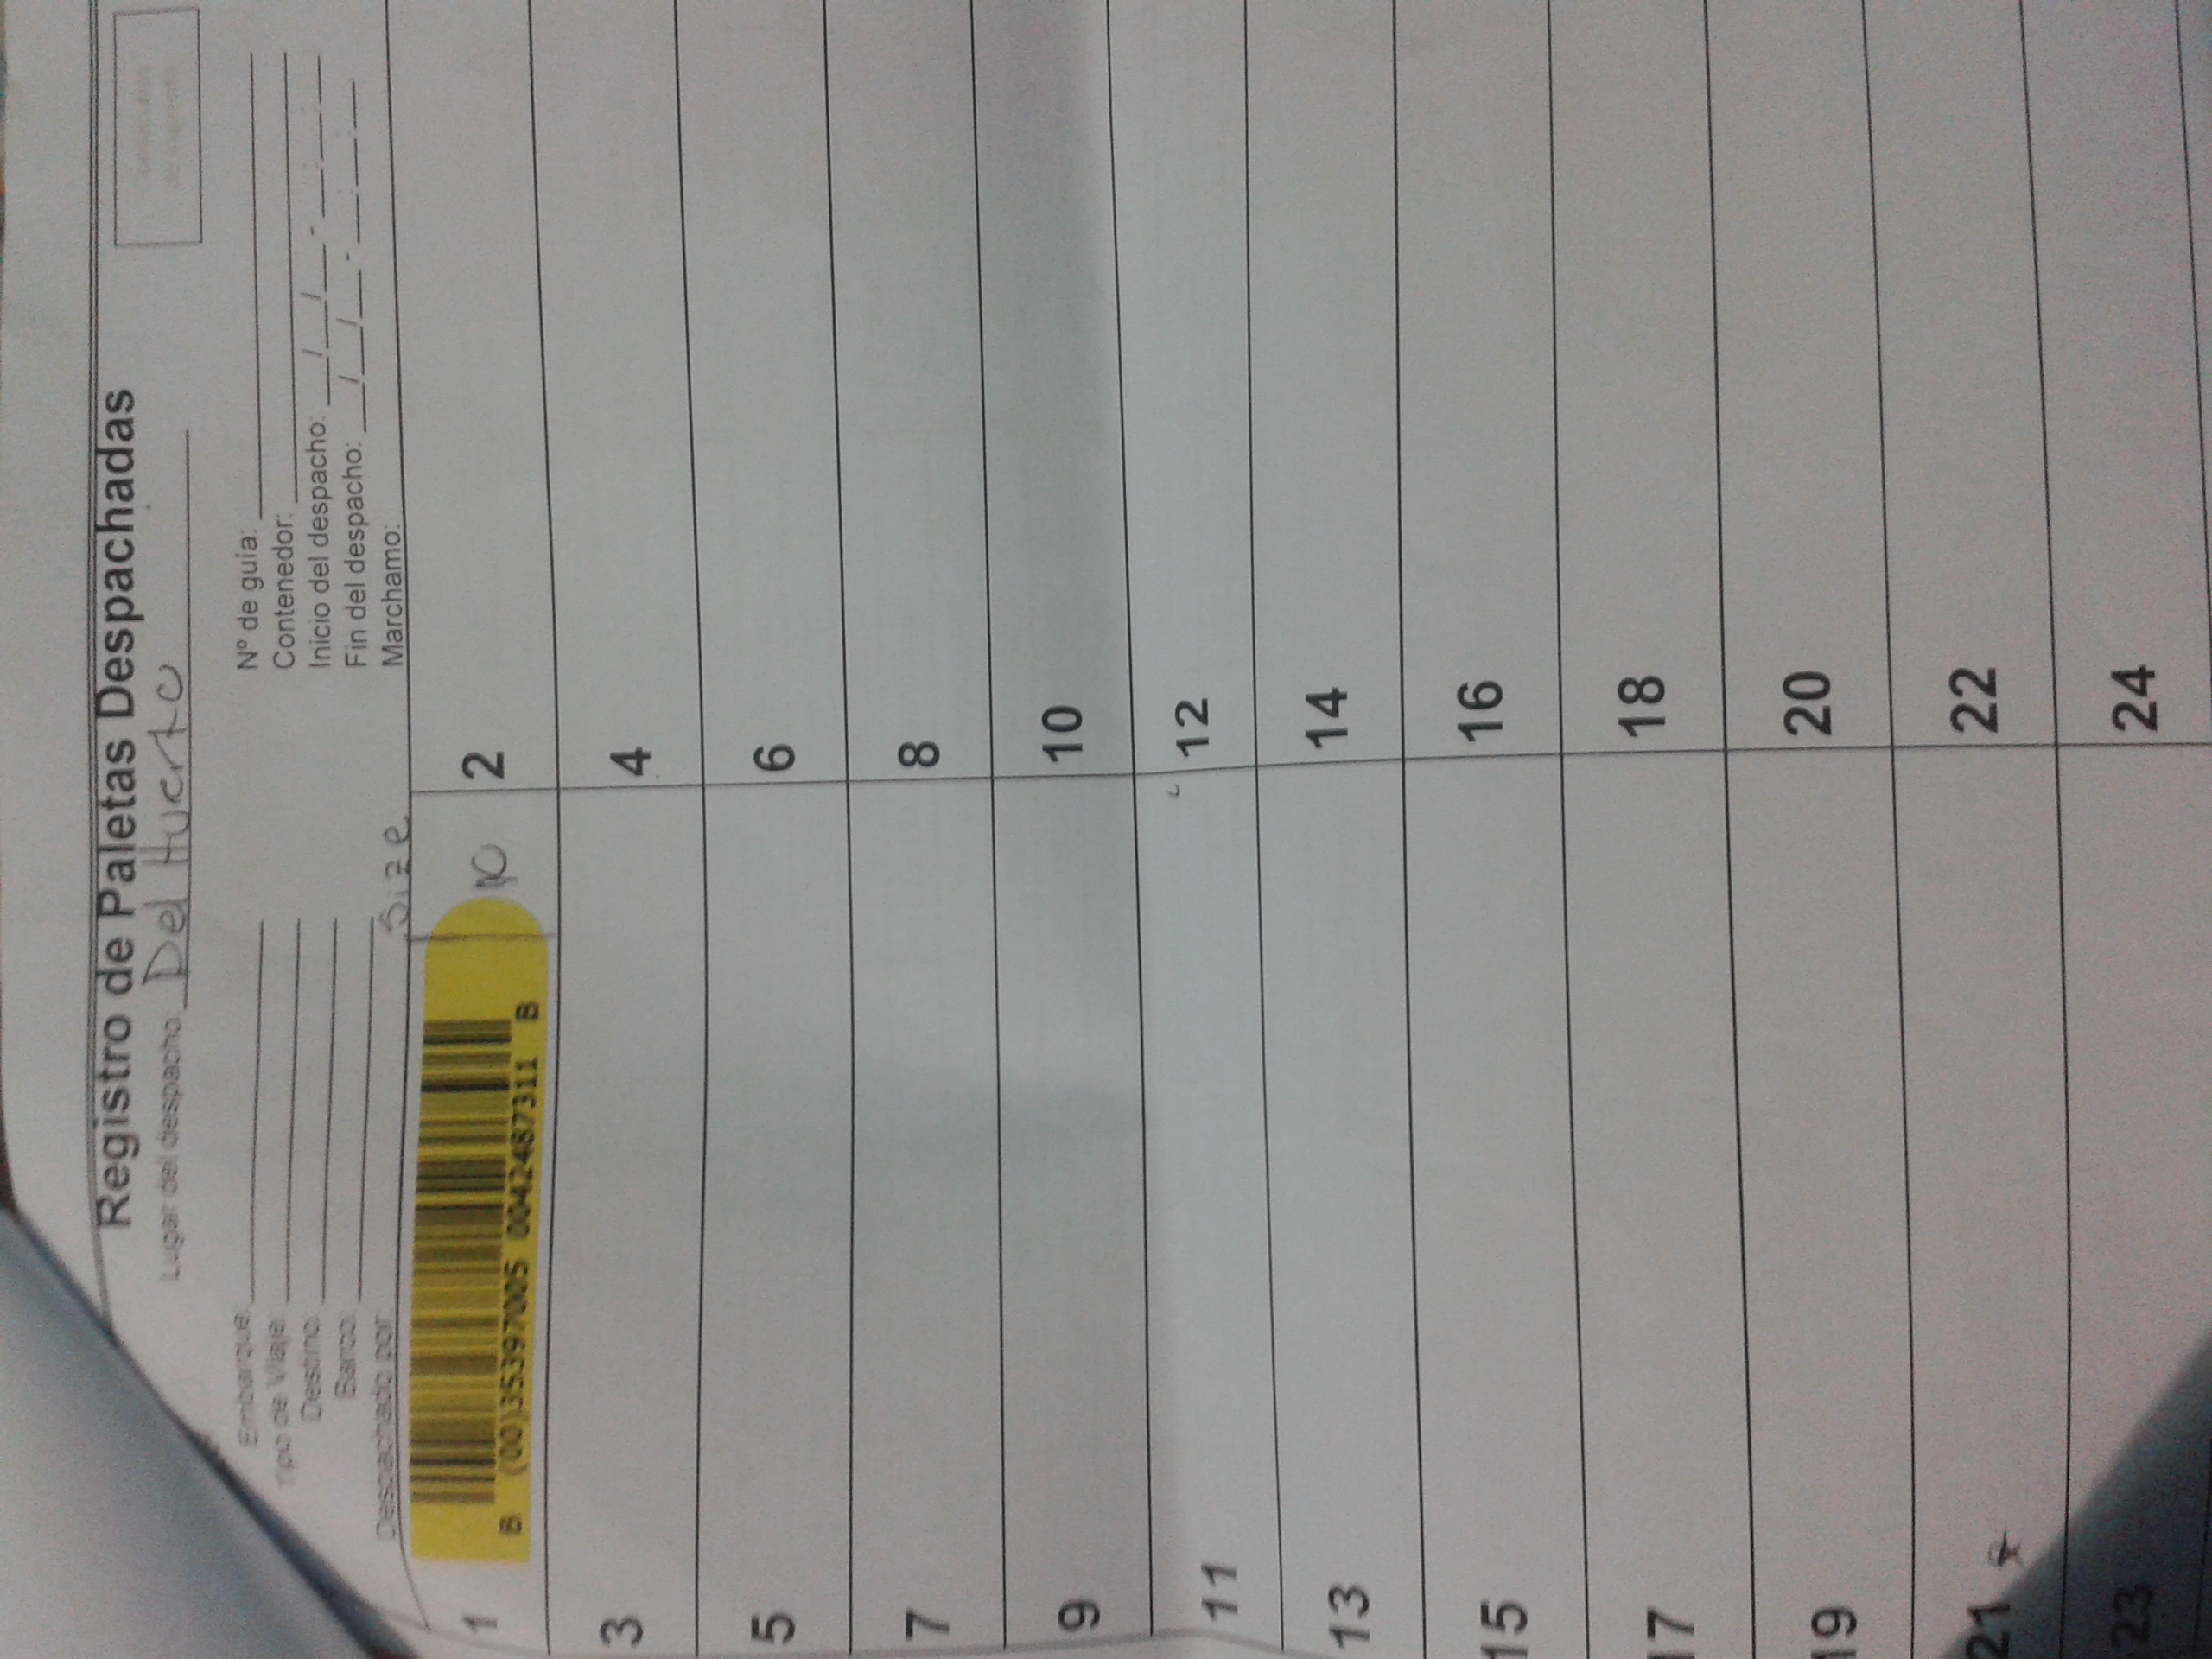 Registro de Paletas Despachadas
Lugar del despacho Del Huerto
Embarque:
Tipo de Viaje:
Destino:
Barco:
Despachado por:
Nº de guia:
Contenedor:
Inicio del despacho: __/__/__ - __:__:__
Fin del despacho: __/__/__ - __:__:__
Marchamo:
Size
1
B (00)35397005 0042487311 B
10
2
3
4
5
6
7
8
9
10
11
12
13
14
15
16
17
18
19
20
21
22
23
24